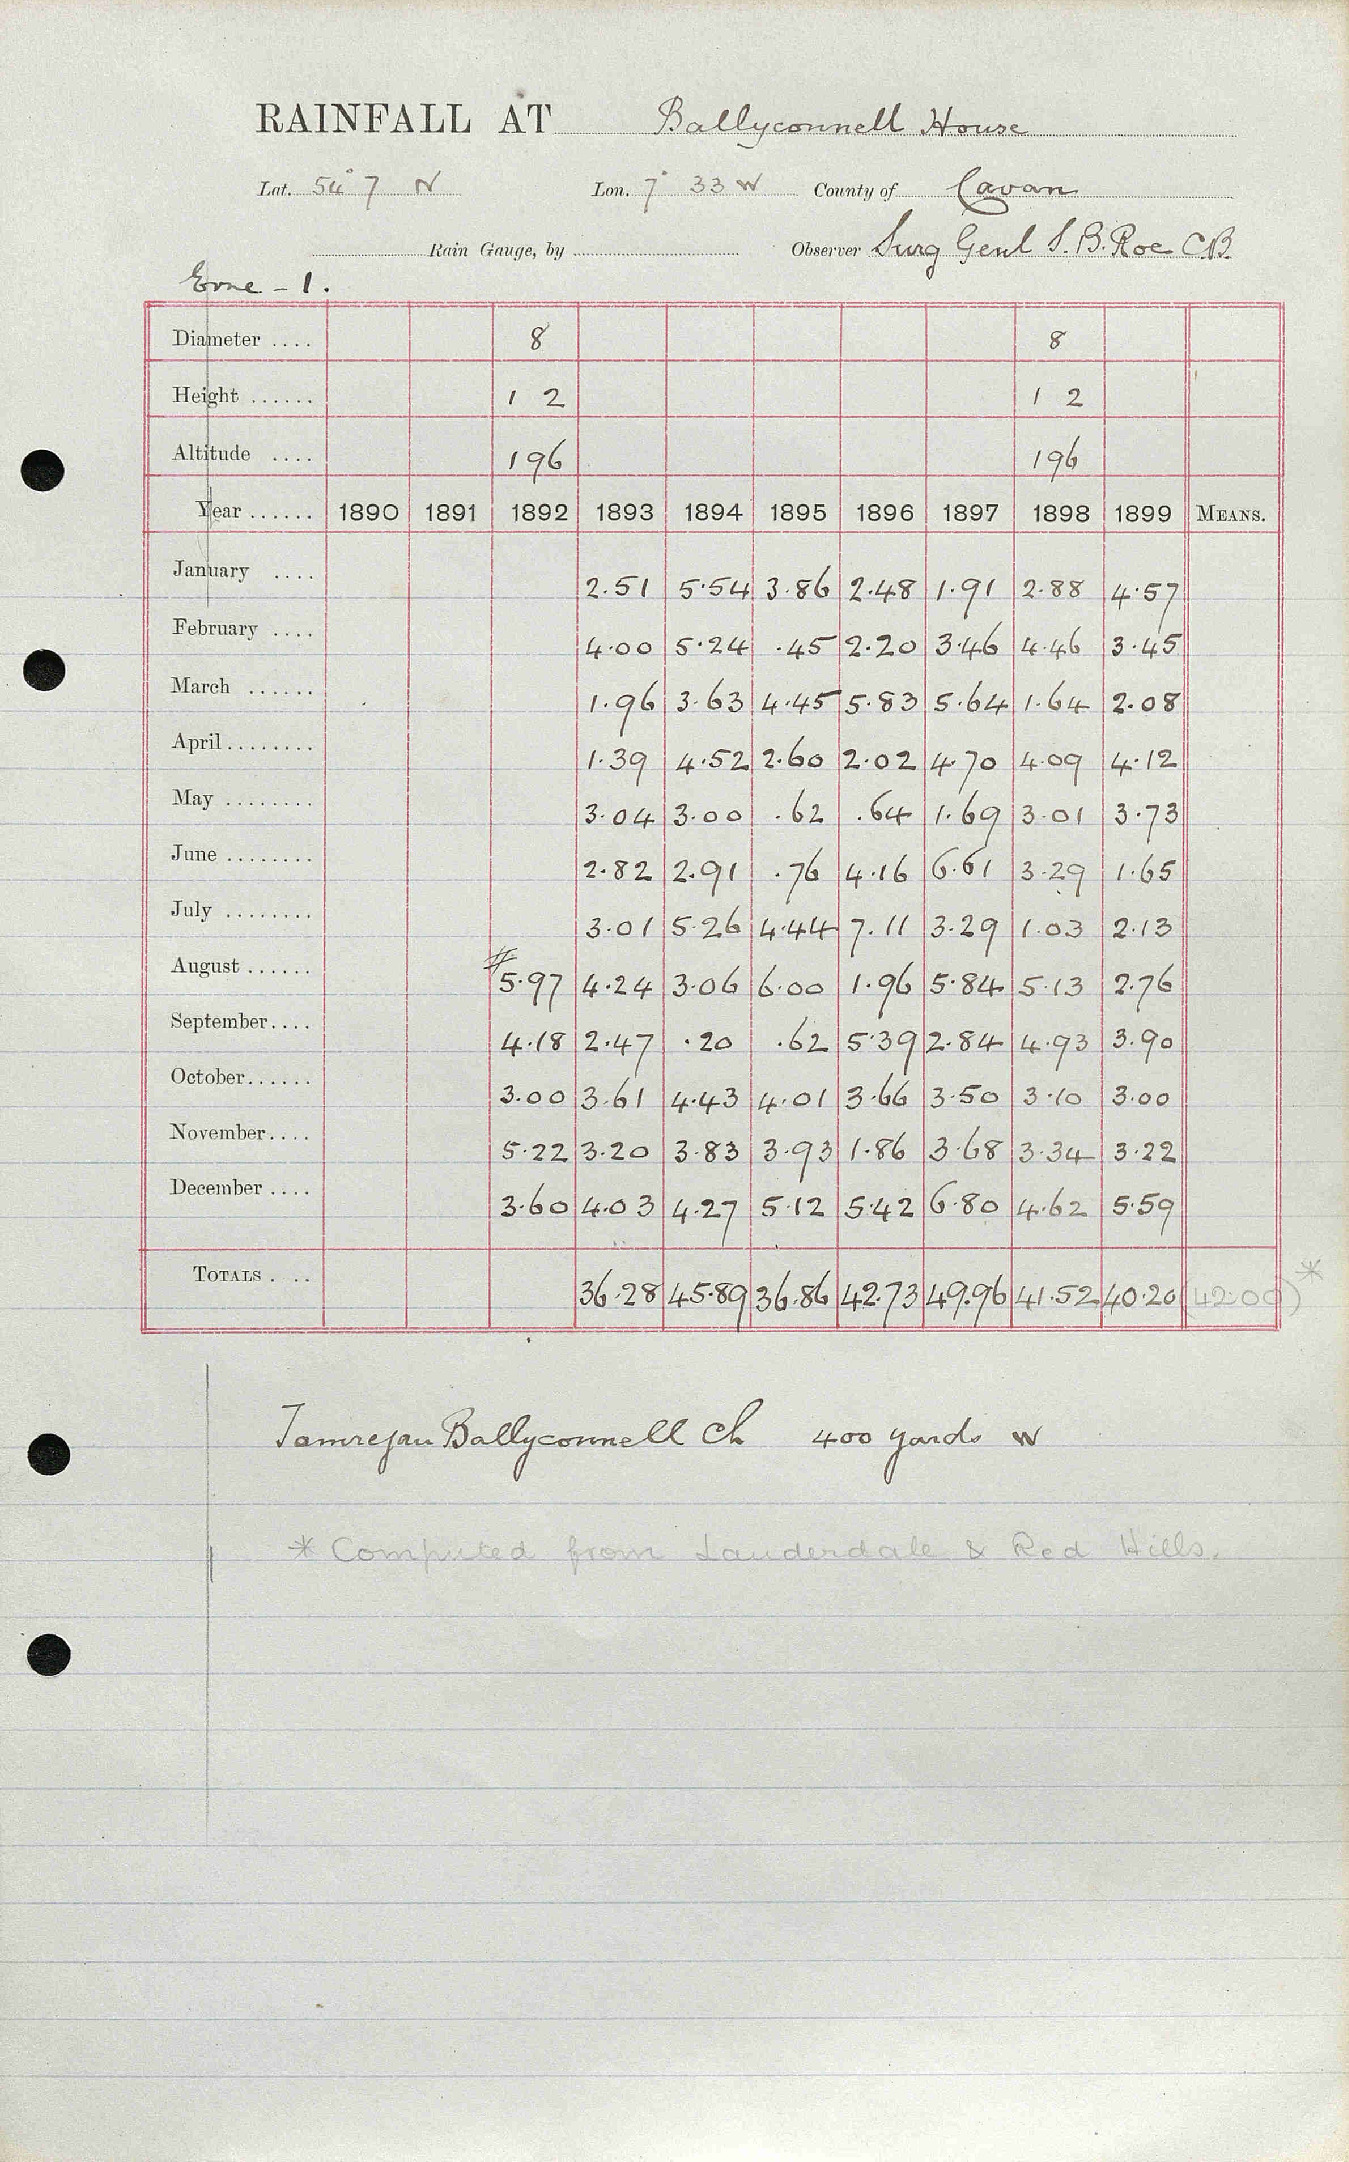 RAINFALL AT Ballyconnell House
Lat. 54° 7 N Lon. 7° 33 W County of Cavan
Rain Gauge, by Observer Surg Genl S. B. Roe C.B.
Erne - 1.
Diameter .... 8 8
Height ...... 1 2 1 2
Altitude .... 196 196
Year ...... 1890 1891 1892 1893 1894 1895 1896 1897 1898 1899 MEANS.
January .... 2.51 5.54 3.86 2.48 1.91 2.88 4.57
February .... 4.00 5.24 .45 2.20 3.46 4.46 3.45
March ...... 1.96 3.63 4.45 5.83 5.64 1.64 2.08
April ........ 1.39 4.52 2.60 2.02 4.70 4.09 4.12
May ........ 3.04 3.00 .62 .64 1.69 3.01 3.73
June ........ 2.82 2.91 .76 4.16 6.61 3.29 1.65
July ........ 3.01 5.26 4.44 7.11 3.29 1.03 2.13
August ...... #5.97 4.24 3.06 6.00 1.96 5.84 5.13 2.76
September .... 4.18 2.47 .20 .62 5.39 2.84 4.93 3.90
October ...... 3.00 3.61 4.43 4.01 3.66 3.50 3.10 3.00
November .... 5.22 3.20 3.83 3.93 1.86 3.68 3.34 3.22
December .... 3.60 4.03 4.27 5.12 5.42 6.80 4.62 5.59
TOTALS . .. 36.28 45.89 36.86 42.73 49.96 41.52 40.20 (42.00)*
Ballyconnell Ch 400 yards W
* Computed from Lauderdale & Red Hills.